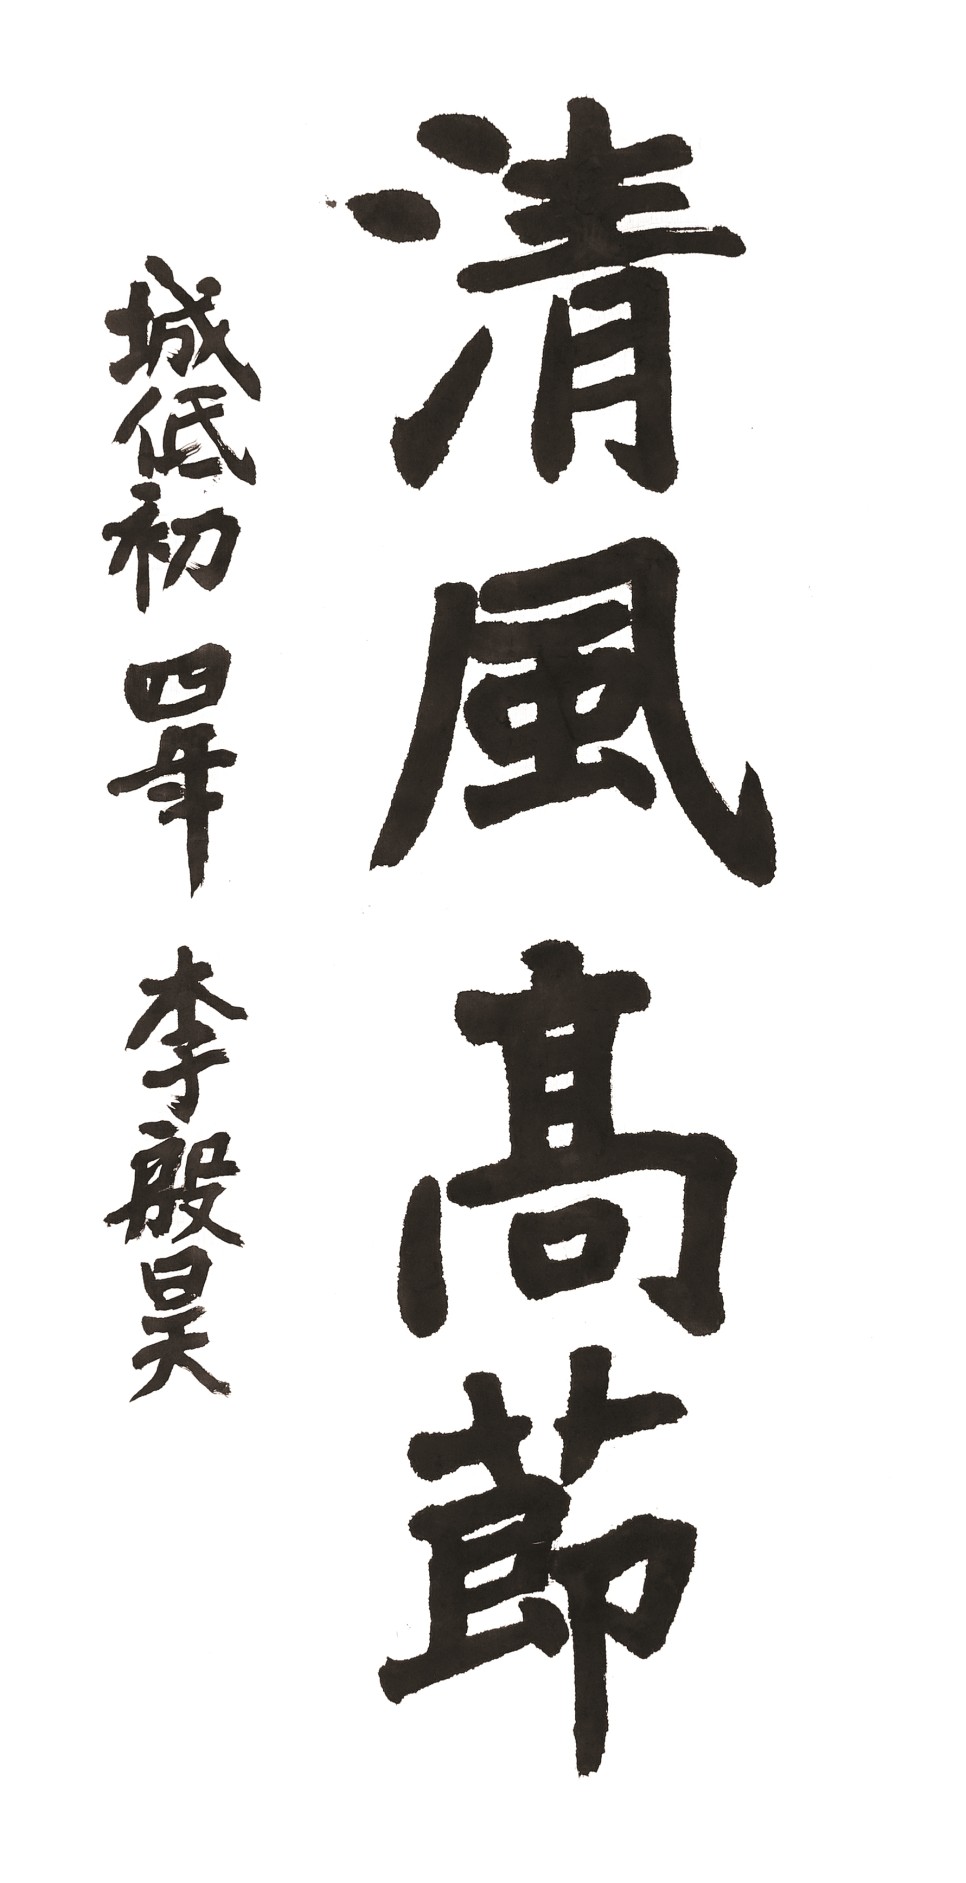 清風髙莭
城低初 四年 李殷昊